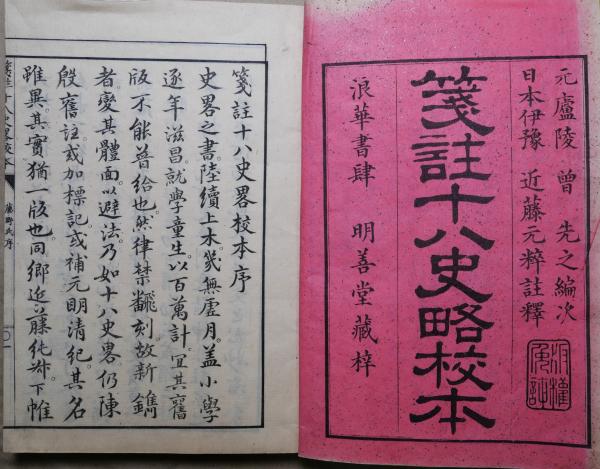 元廬陵 曾 先之編次
日本伊豫 近藤元粹註釋
箋註十八史略校本
浪華書肆 明善堂藏梓
版權免許
箋註十八史畧校本序
史畧之書。陸續上木。幾無虛月。蓋小學
逐年滋昌。就學童生。以百萬計。宜其舊
版不能普給也。然律禁飜刻。故新鐫
者。變其體面。以避法。乃如十八史畧。仍陳
殷舊註。或加標記。或補元明清紀。其名
雖異。其實猶一版也。同鄉近藤純叔。下帷
箋註十八史畧校本 藤野氏序